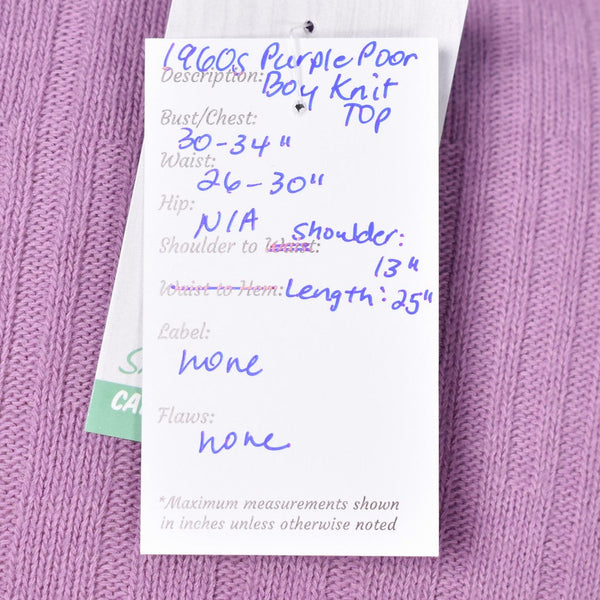 1960s Purple Poor
Description: Boy Knit
TOP
Bust/Chest:
30-34"
Waist:
26-30"
Hip:
N/A
Shoulder to Waist: Shoulder:
13"
Waist to Hem: Length: 25"
Label:
none
Flaws:
none
*Maximum measurements shown
in inches unless otherwise noted